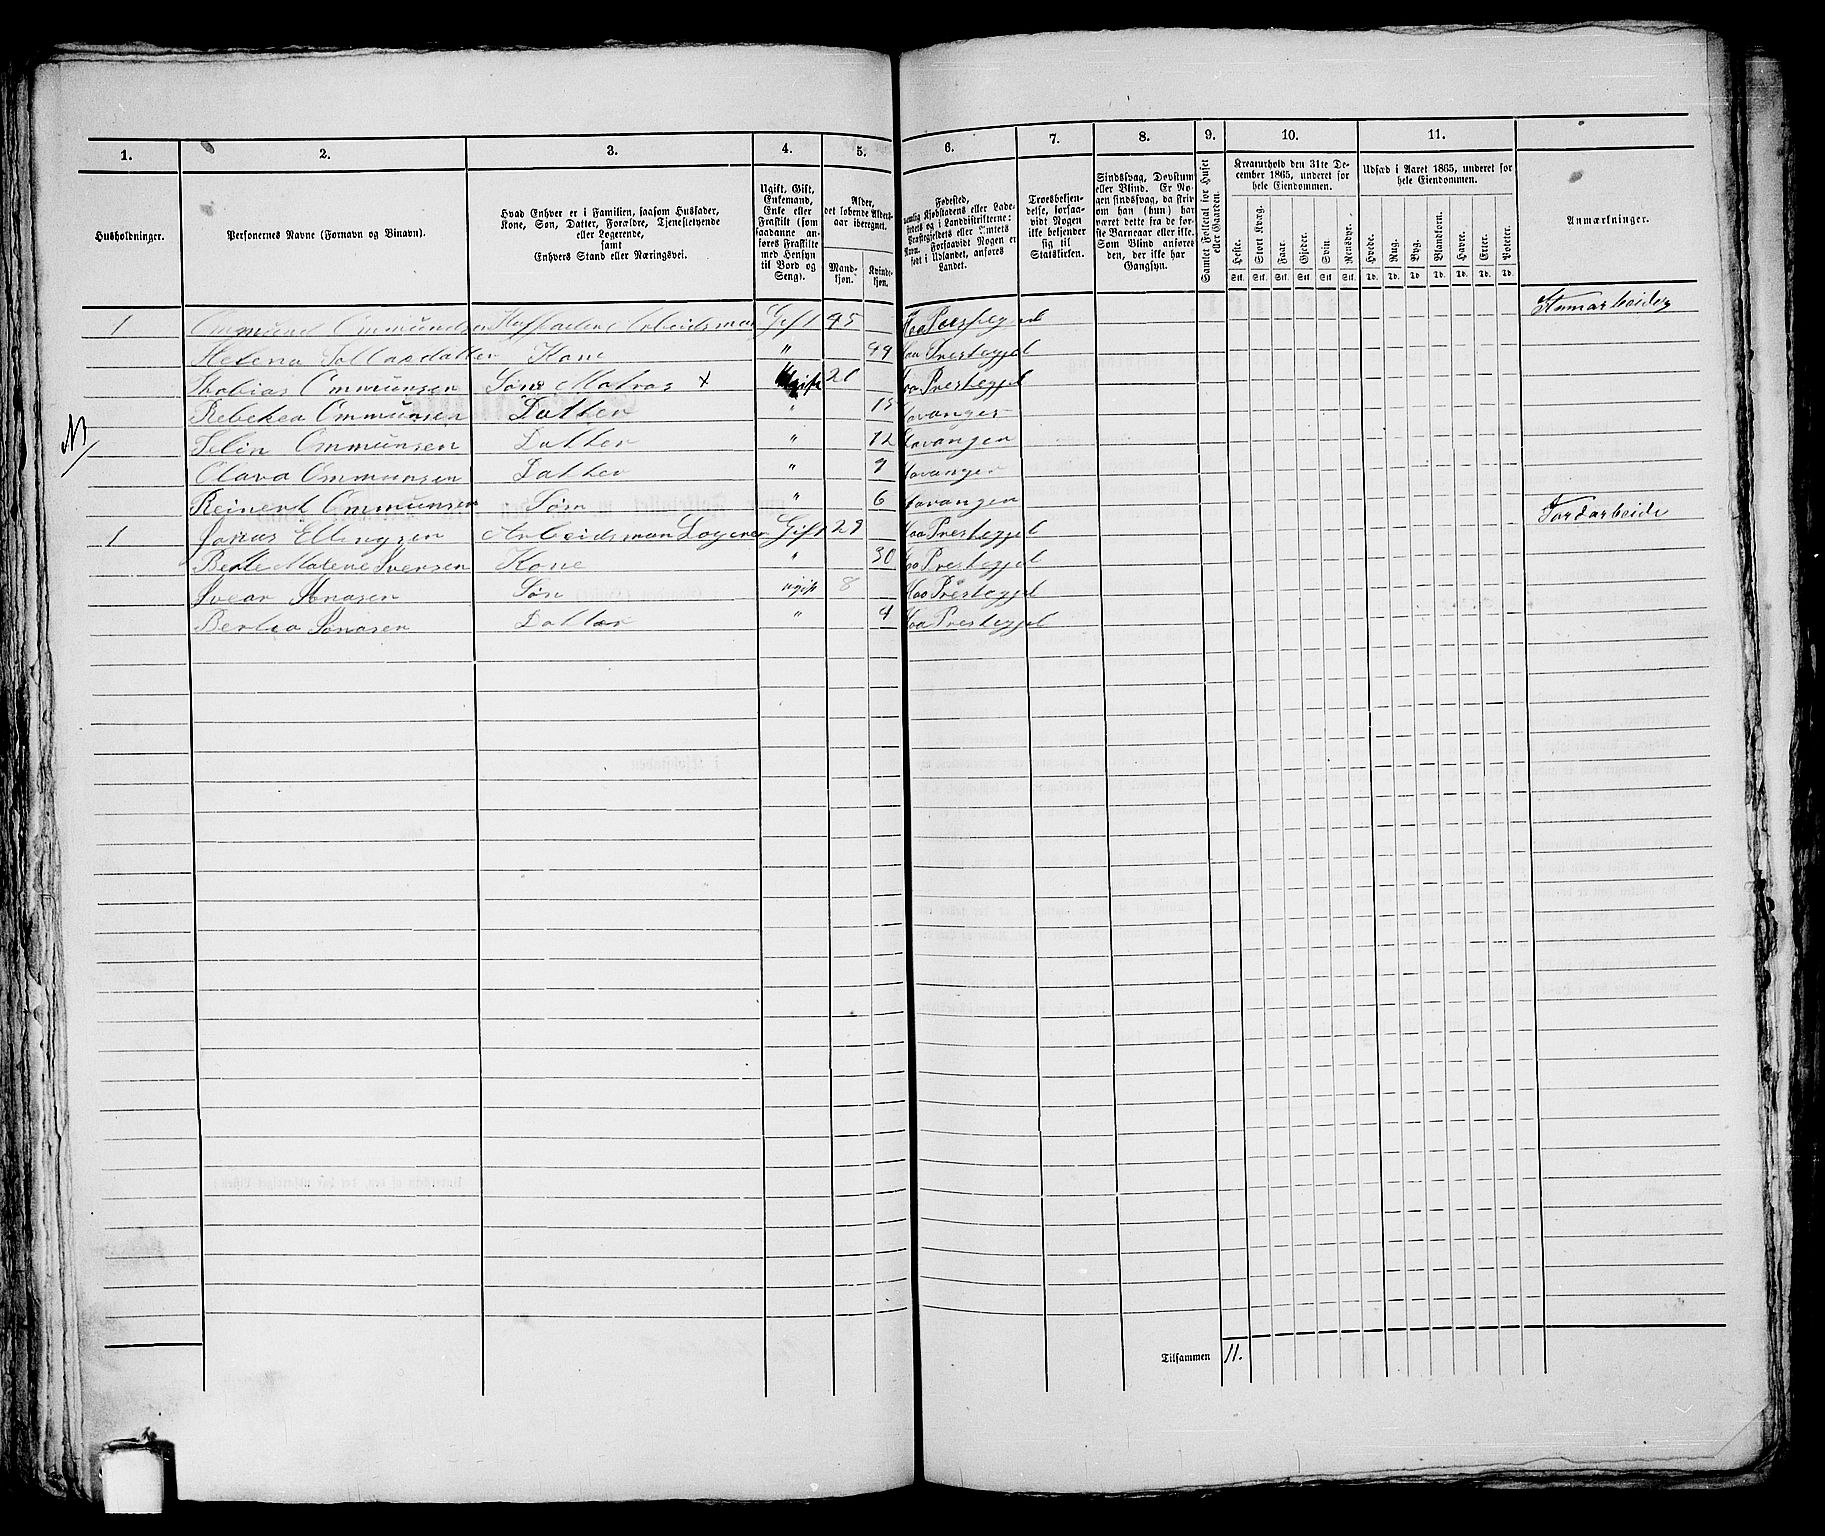 1. 2. 3. 4. 5. 6. 7. 8. 9. 10. 11.
Husholdninger.
Personernes Navne (Fornavn og Binavn).
Hvad Enhver er i Familien, saasom Husfader,
Kone, Søn, Datter, Forældre, Tjenestetyende
eller Logerende,
samt
Enhvers Stand eller Næringsvei.
Ugift, Gift,
Enkemand,
Enke eller
Fraskilt (som
saadanne an-
føres Fraskilte
med Hensyn
til Bord og
Seng).
Alder,
det løbende Alders-
aar iberegnet.
Mand-
kjøn.
Kvinde-
kjøn.
Fødested,
Kjøbstadens eller Lade-
stedets og i Landdistrikterne:
Præstegjeldets eller
Navn. Forsaavidt Nogen er
født i Udlandet, anføres
Landet.
Troesbekjen-
delse, forsaa-
vidt Nogen
ikke bekjender
sig til
Statskirken.
Sindssvag, Døvstum
eller Blind. Er No-
gen sindssvag, da skriv
om han (hun) har
været dette fra de før-
ste Barneaar eller ikke.
Som Blind anføres
den, der ikke har
Gangsyn.
Samlet Folketal for Huset
eller Gaarden.
Kreaturhold den 31te De-
cember 1865, underet for
hele Eiendommen.
Heste. Stort Kvæg. Faar. Gjeder. Sviin. Rensdyr.
Stk. Stk. Stk. Stk. Stk. Stk.
Udsæd i Aaret 1865, underet for
hele Eiendommen.
Hvede. Rug. Byg. Blandkorn. Havre. Erter. Poteter.
Td. Td. Td. Td. Td. Td. Td.
Anmærkninger.
1 Ommund Ommundsen Arbeidsman Gift 45 Haa Prestegjel
Helena Kone " 49 Haa Prestegjel
Thobias Ommunsen Søn Matros x ugift 21 Haa Prestegjel
Rebekea Ommunsen Datter " 15 Stavanger
Selin Ommunsen Datter " 12 Stavanger
Clara Ommunsen Datter " 9 Stavanger
Reinert Ommunsen Søn " 6 Stavangen
1 Jonas Ellingsen Arbeidsman Logerer Gift 29 Haa Prestegjel Jordarbeide
Berte Malene Svensen Kone " 30 Haa Prestegjel
Svear Jonasen Søn ugift 8 Haa Prestegjel
Bertea Jonasen Datter " 4 Haa Prestegjel
Tilsammen 11.